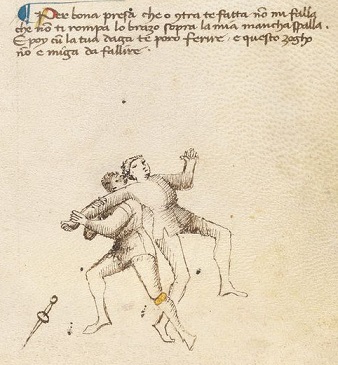 Per bona presa che o contra te fatta no mi falla
che non ti rompa lo brazo sopra la mia mancha spalla.
E poy cu la tua daga te poro ferire. e questo zogho
no e miga da fallire.